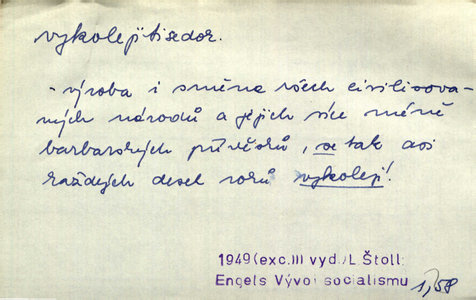 vykolejiti se dok.
- výroba i směna všech civilisova-
ných národů a jejich více méně
barbarských přívěsků, se tak asi
každých deset roků vykolejí!
1949 (exc. III) vyd. / L Štoll:
Engels Vývoj socialismu 1,58